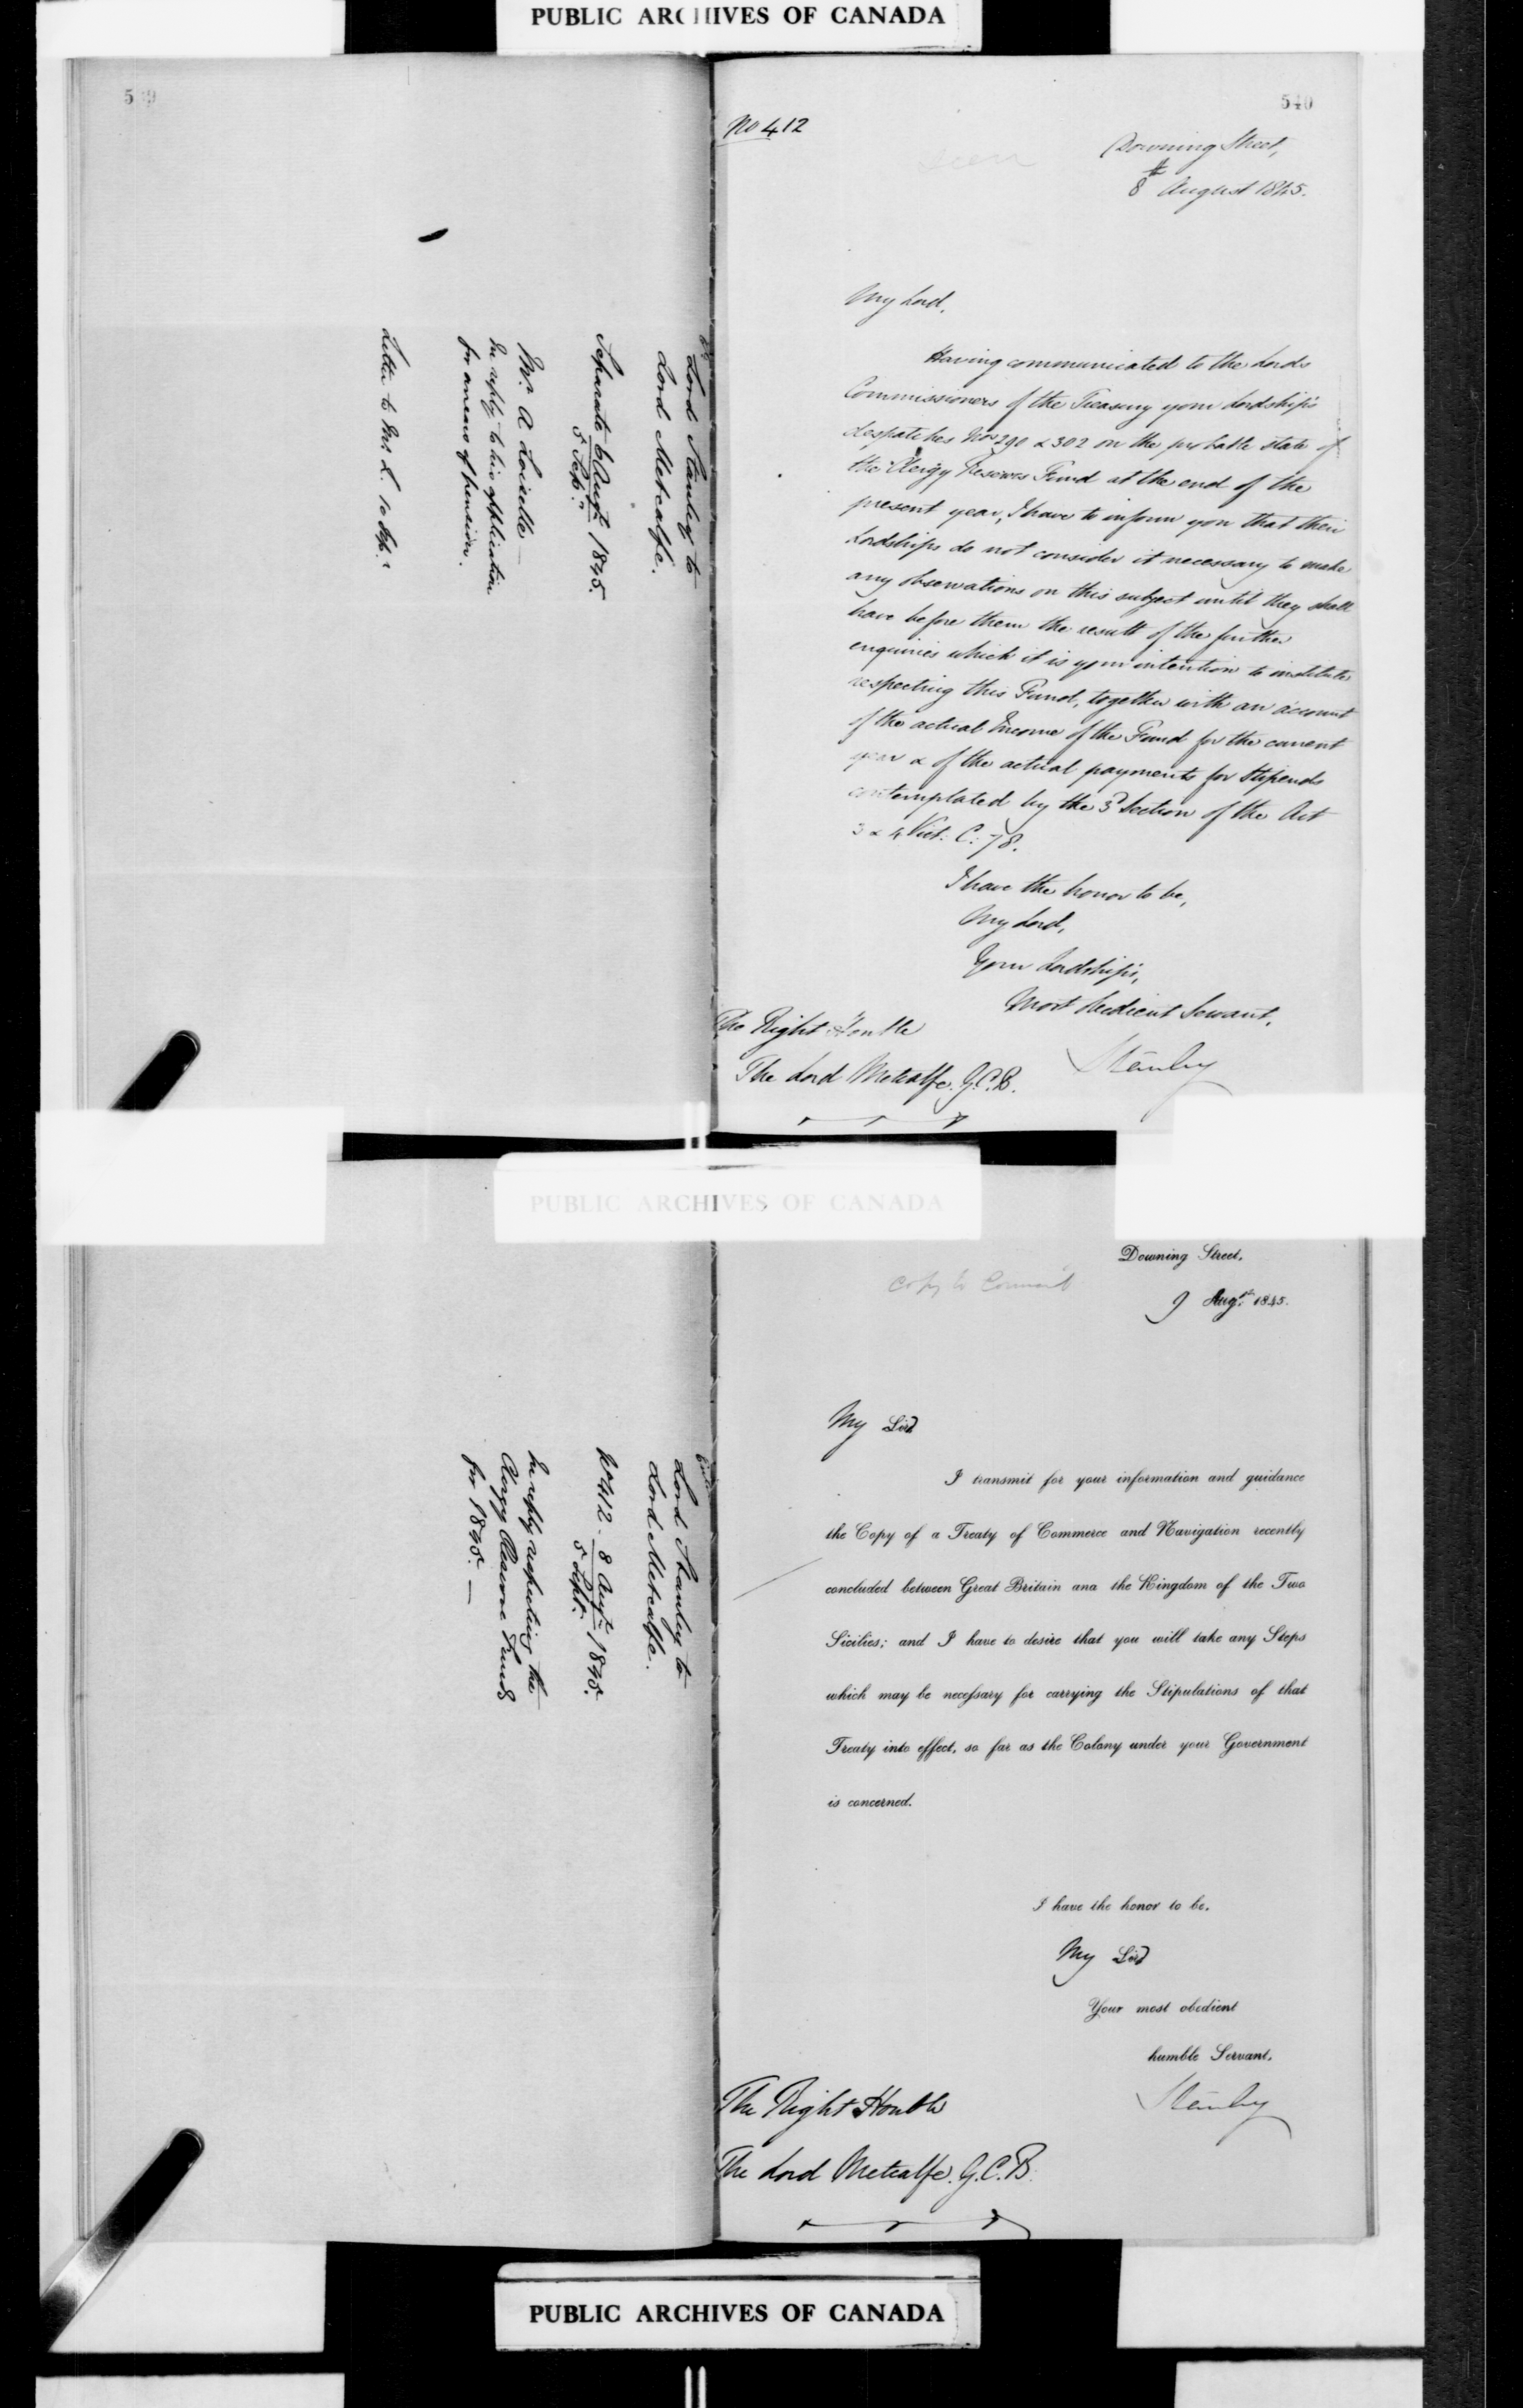 PUBLIC ARCHIVES OF CANADA
539
Lord Stanley to
Lord Metcalfe.
Separate 6 Augt 1845.
5 Sept.
Mr. A Loiselle —
In reply to his application
for arrears of pension.
Letter to Mr. L. 10 Sep.
540
No 412
seen
Downing Street,
8th August 1845.
My Lord,
Having communicated to the Lords
Commissioners of the Treasury your Lordship's
despatches Nos 290 & 302 on the probable state of
the Clergy Reserves Fund at the end of the
present year, I have to inform you that their
Lordships do not consider it necessary to make
any observations on this subject until they shall
have before them the result of the further
enquiries which it is your intention to institute
respecting this Fund, together with an account
of the actual Income of the Fund for the current
year & of the actual payments for Stipends
contemplated by the 3d Section of the Act
3 & 4 Vict: C: 78.
I have the honor to be,
My Lord,
Your Lordship's,
Most Obedient Servant,
Stanley
The Right Honble
The Lord Metcalfe. G.C.B.
PUBLIC ARCHIVES OF CANADA
Lord Stanley to
Lord Metcalfe.
No 412. 8 Augt 1845.
5 Sept.
In reply respecting the
Clergy Reserve Funds
for 1845. —
Copy to Council
Downing Street,
9 Augt. 1845.
My Lord
I transmit for your information and guidance
the Copy of a Treaty of Commerce and Navigation recently
concluded between Great Britain and the Kingdom of the Two
Sicilies; and I have to desire that you will take any Steps
which may be necessary for carrying the Stipulations of that
Treaty into effect, so far as the Colony under your Government
is concerned.
I have the honor to be,
My Lord
Your most obedient
humble Servant,
Stanley
The Right Honble
The Lord Metcalfe. G.C.B.
PUBLIC ARCHIVES OF CANADA